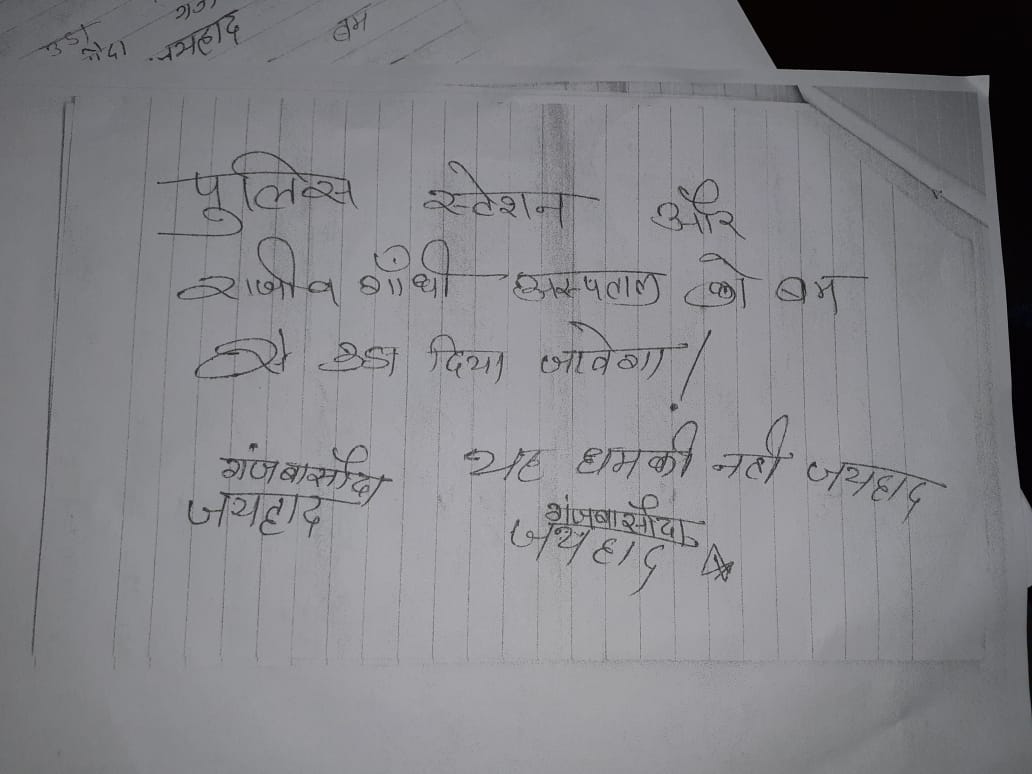 बम
जयहाद
पुलिस स्टेशन और
राजीव गाँधी अस्पताल को बम
से उडा दिया जावेगा!
यह धमकी नही जयहाद
गंजबासौदा
जयहाद
गंजबासौदा
जयहाद